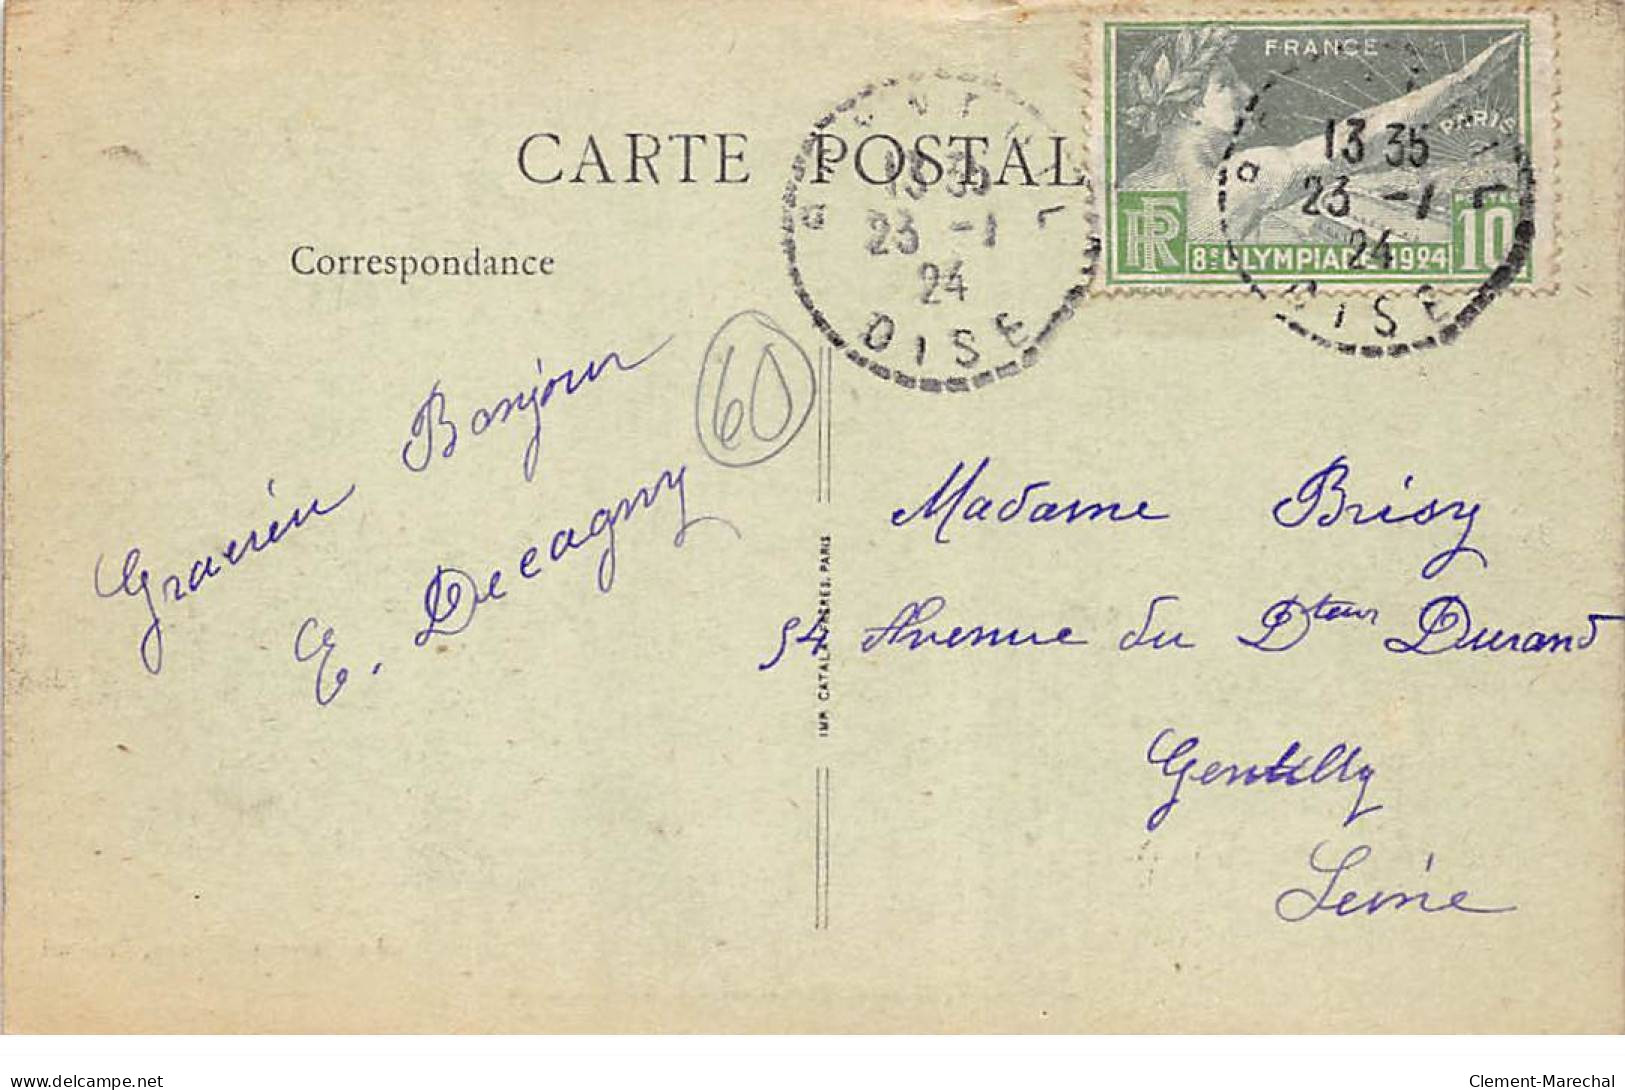 FRANCE
PARIS
CARTE POSTAL
13 35
23 -1
24
OISE
13 35
23 -1
24
OISE
RF
8E OLYMPIADE 1924
POSTES
10
Correspondance
60
Gracieu Bonjour
E. Decagny
Madame Brisy
54 Avenue du Dteur Durand
Gentilly
Seine
IMP. CATALA FRERES, PARIS
delcampe.net
Clement-Marechal